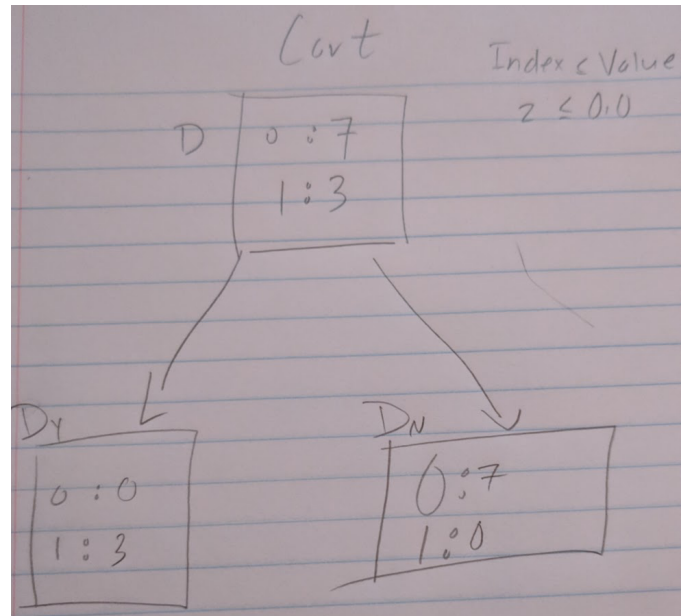 Cart
Index < Value
2 ≤ 0.0
D
0 : 7
1 : 3
DY
0 : 0
1 : 3
DN
0 : 7
1 : 0